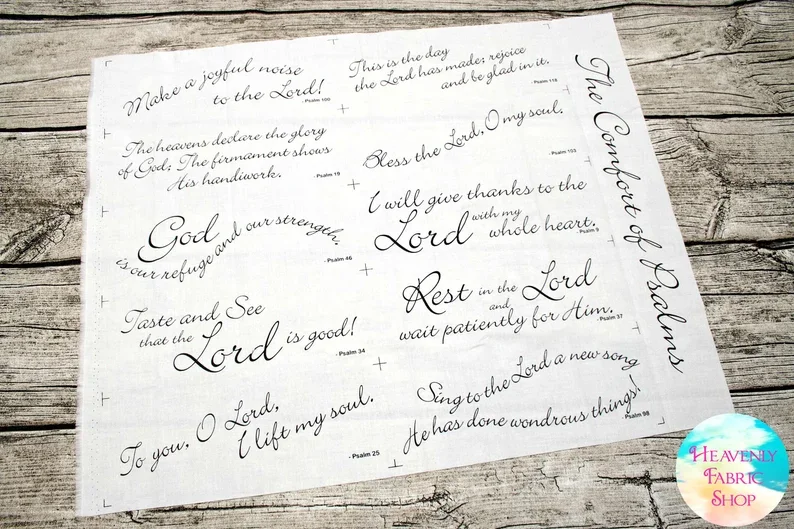 Make a joyful noise
to the Lord!
- Psalm 100
This is the day
the Lord has made; rejoice
and be glad in it.
- Psalm 118
The heavens declare the glory
of God; The firmament shows
His handiwork.
- Psalm 19
Bless the Lord, O my soul.
- Psalm 103
God
is our refuge and our strength.
- Psalm 46
I will give thanks to the
Lord with my
whole heart.
- Psalm 9
Taste and See
that the
Lord is good!
- Psalm 34
Rest in the Lord
and
wait patiently for Him.
- Psalm 37
To you, O Lord,
I lift my soul.
- Psalm 25
Sing to the Lord a new song –
He has done wondrous things!
- Psalm 98
The Comfort of Psalms
HEAVENLY
FABRIC
SHOP